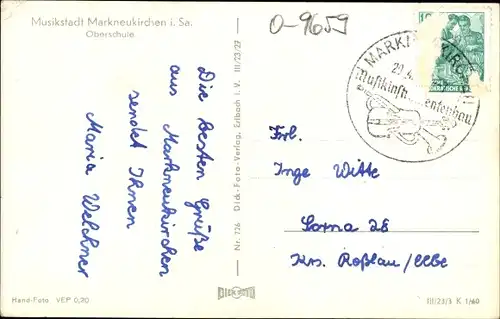 Musikstadt Markneukirchen i. Sa.
Oberschule
O-9659
Die besten Grüße
aus Markneukirchen
sendet Ihnen
Maria Welchner
Nr. 726 Dick-Foto-Verlag, Erlbach i. V. III/23/27
DICK FOTO
10
MARKNEUKIRCHEN
Musikinstrumentenbau
Frl.
Inge Witte
Sorna 28
Krs. Roßlau/Elbe
Hand-Foto VEP 0,20
III/23/3 K 1/60